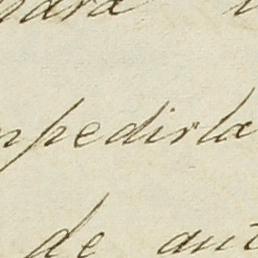 para
mpedirla
de aut